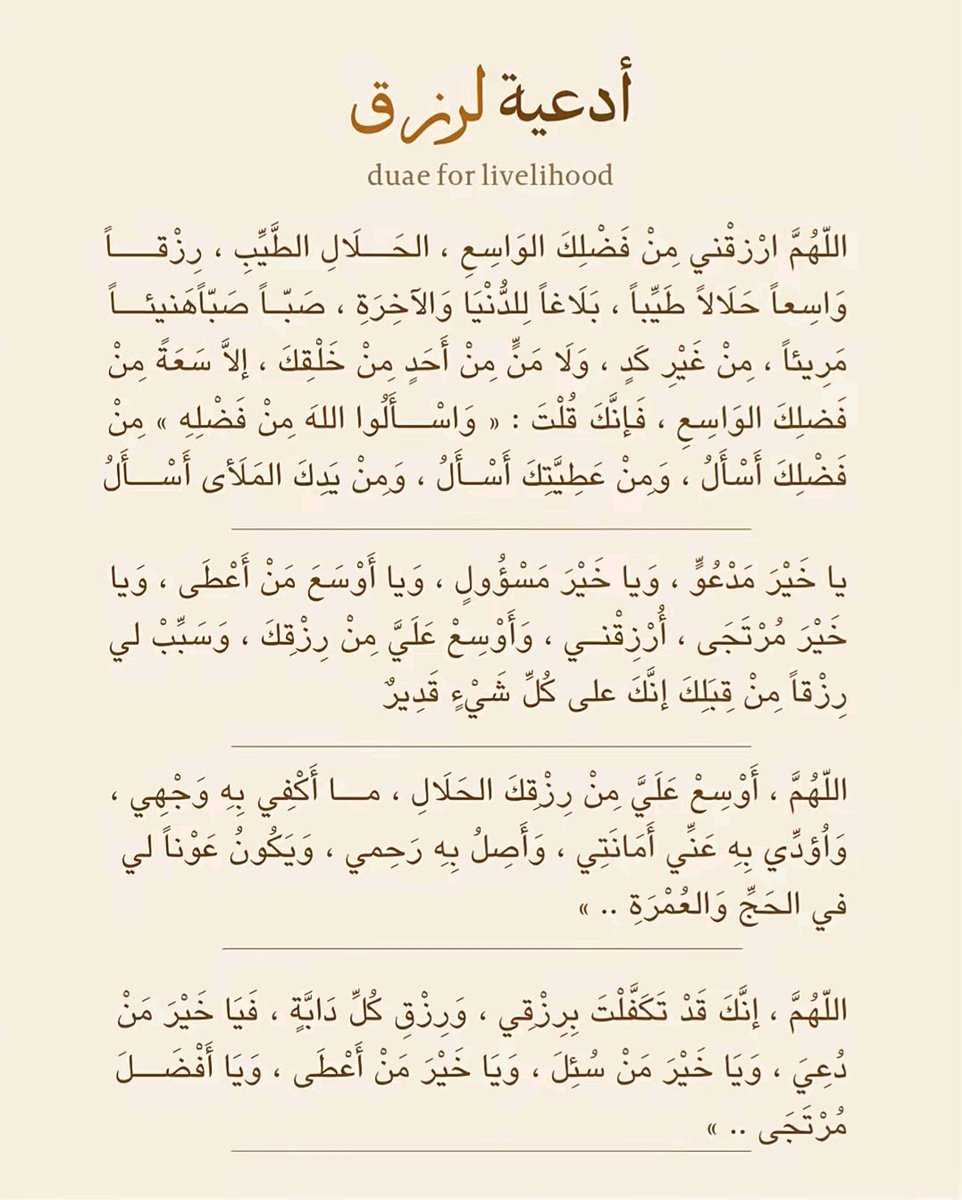 أدعية لرزق
duae for livelihood
اللّهُمَّ ارْزقْني مِنْ فَضْلِكَ الوَاسِعِ ، الحَـــلَالِ الطَّيِّبِ ، رِزْقـــــاً
وَاسِعاً حَلَالاً طَيِّباً ، بَلَاغاً لِلدُّنْيَا وَالآخِرَةِ ، صَبّــاً صَبّاًهَنيئـــاً
مَرِيئاً ، مِنْ غَيْرِ كَدٍ ، وَلَا مَنٍّ مِنْ أَحَدٍ مِنْ خَلْقِكَ ، إلاَّ سَعَةً مِنْ
فَضلِكَ الوَاسِعِ ، فَإنَّكَ قُلْتَ : « وَاسْـــأَلُوا اللهَ مِنْ فَضْلِهِ » مِنْ
فَضْلِكَ أَسْأَلُ ، وَمِنْ عَطِيَّتِكَ أَسْـأَلُ ، وَمِنْ يَدِكَ المَلَأى أَسْـــأَلُ
يا خَيْرَ مَدْعُوٍّ ، وَيا خَيْرَ مَسْؤُولٍ ، وَيا أَوْسَعَ مَنْ أَعْطَى ، وَيا
خَيْرَ مُرْتَجَى ، أُرْزِقْنــي ، وَأَوْسِعْ عَلَيَّ مِنْ رِزْقِكَ ، وَسَبِّبْ لي
رِزْقاً مِنْ قِبَلِكَ إنَّكَ على كُلِّ شَيْءٍ قَدِيرٌ
اللّهُمَّ ، أَوْسِعْ عَلَيَّ مِنْ رِزْقِكَ الحَلَالِ ، مـــا أَكْفِي بِهِ وَجْهِي ،
وَاُؤدِّي بِهِ عَنِّي أَمَانَتِي ، وَأَصِلُ بِهِ رَحِمي ، وَيَكُونُ عَوْناً لي
في الحَجِّ وَالعُمْرَةِ .. »
اللّهُمَّ ، إنَّكَ قَدْ تَكَفَّلْتَ بِرِزْقِي ، وَرِزْقِ كُلِّ دَابَّةٍ ، فَيَا خَيْرَ مَنْ
دُعِيَ ، وَيَا خَيْرَ مَنْ سُئِلَ ، وَيَا خَيْرَ مَنْ أَعْطَى ، وَيَا أَفْضَـــلَ
مُرْتَجَى .. »